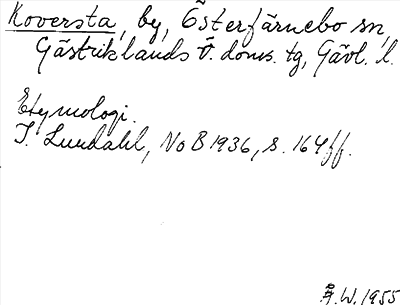 Koversta, by, Österfärnebo sn,
Gästriklands v. doms. tg, Gävl. l.
Etymologi.
I. Lundahl, NoB 1936, s. 164 ff.
W. 1955